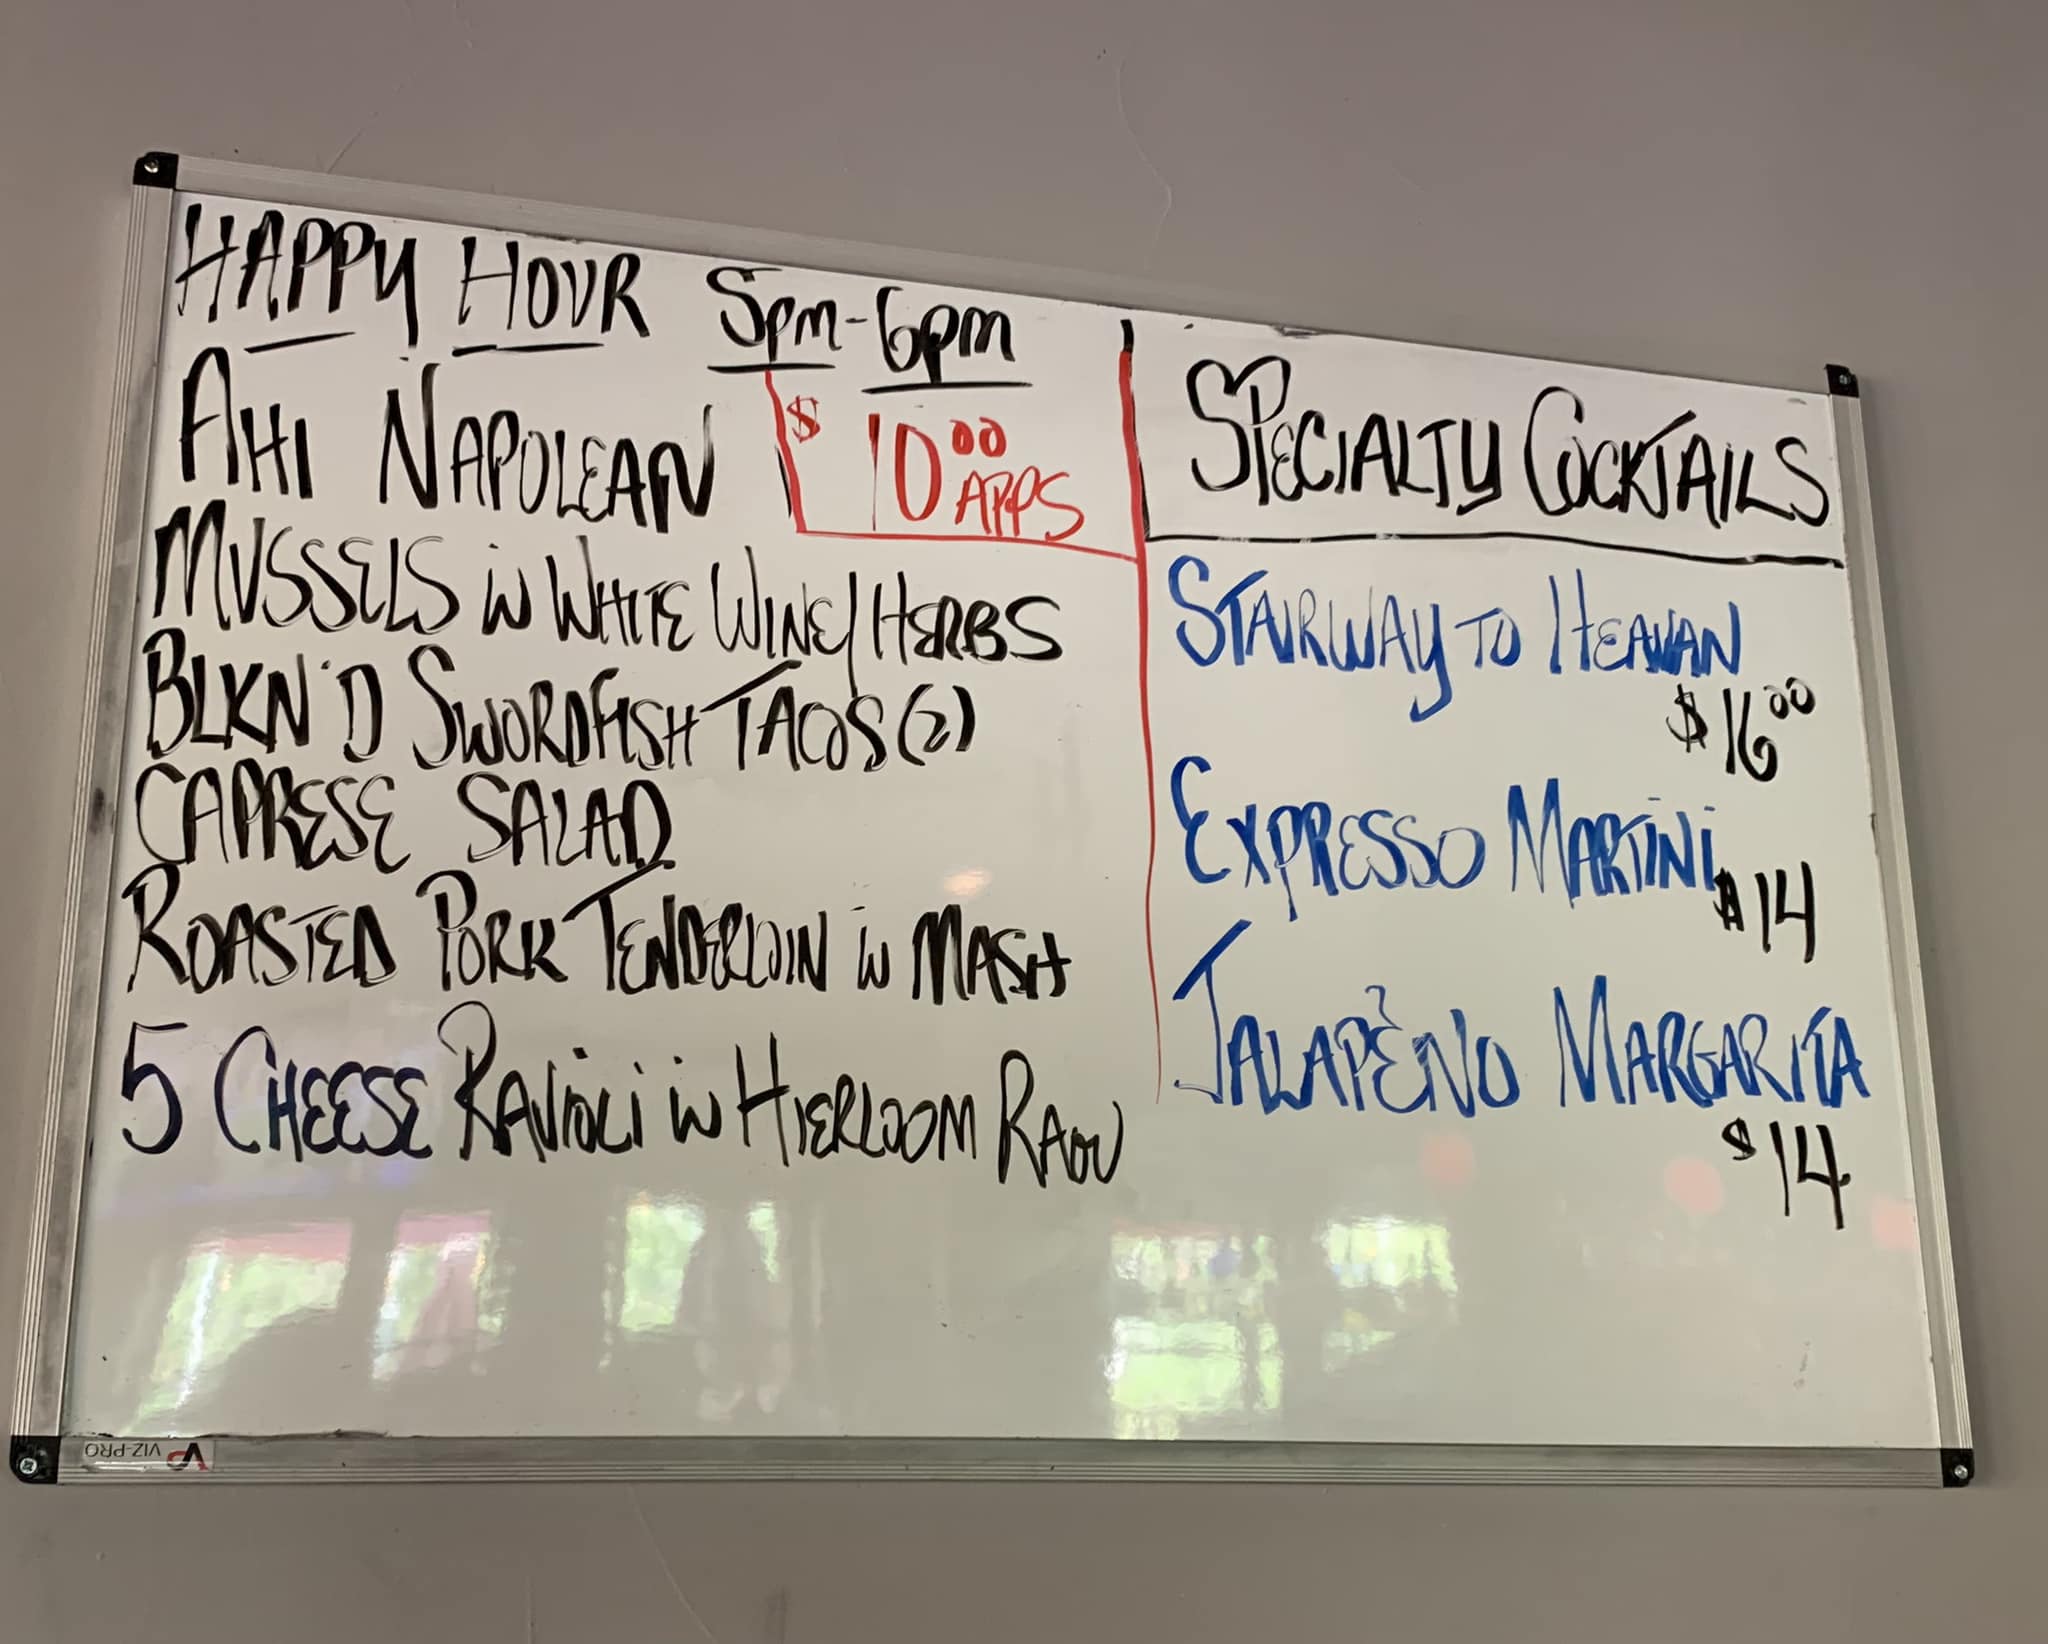 HAPPY HOUR 5pm-6pm
AHI NAPOLEAN
$10.00 APPS
MUSSELS IN WHITE WINE/HERBS
BLKN'D SWORDFISH TACOS (2)
CAPRESE SALAD
ROASTED PORK TENDERLOIN W MASH
5 CHEESE RAVIOLI W HIERLOOM RAGU
SPECIALTY COCKTAILS
STAIRWAY TO HEAVAN
$16.00
EXPRESSO MARTINI
$14
JALAPEÑO MARGARITA
$14
VIZ-PRO